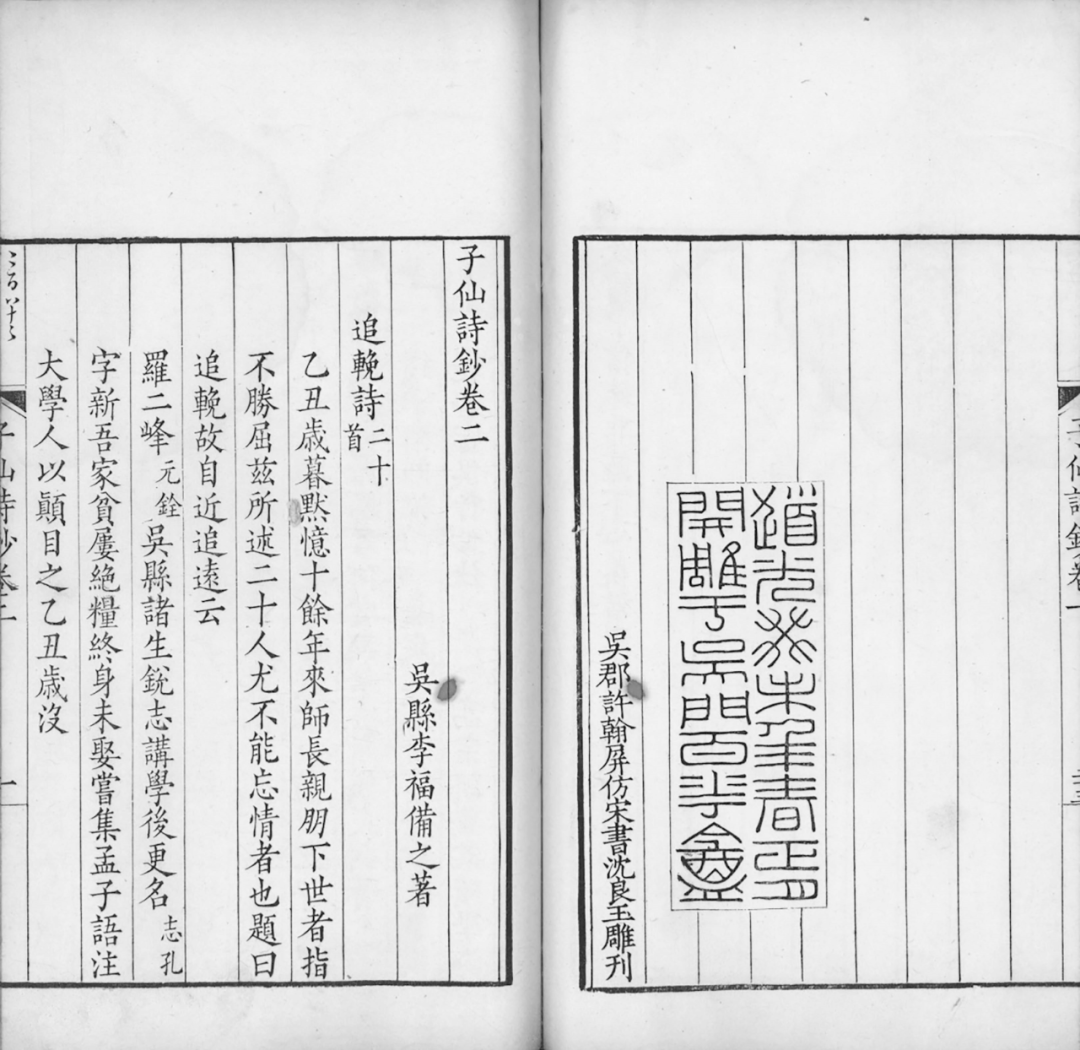 子仙詩鈔卷一
道光癸未年春正月
開雕于吳門百半盦
吳郡許翰屏仿宋書沈良玉雕刊
子仙詩鈔卷二
吳縣李福備之著
追輓詩二十首
乙丑歳暮默憶十餘年來師長親朋下世者指
不勝屈茲所述二十人尤不能忘情者也題曰
追輓故自近追遠云
羅二峰元銓吳縣諸生銳志講學後更名志孔
字新吾家貧屢絶糧終身未娶嘗集孟子語注
大學人以顚目之乙丑歳沒
子仙詩鈔卷二
一